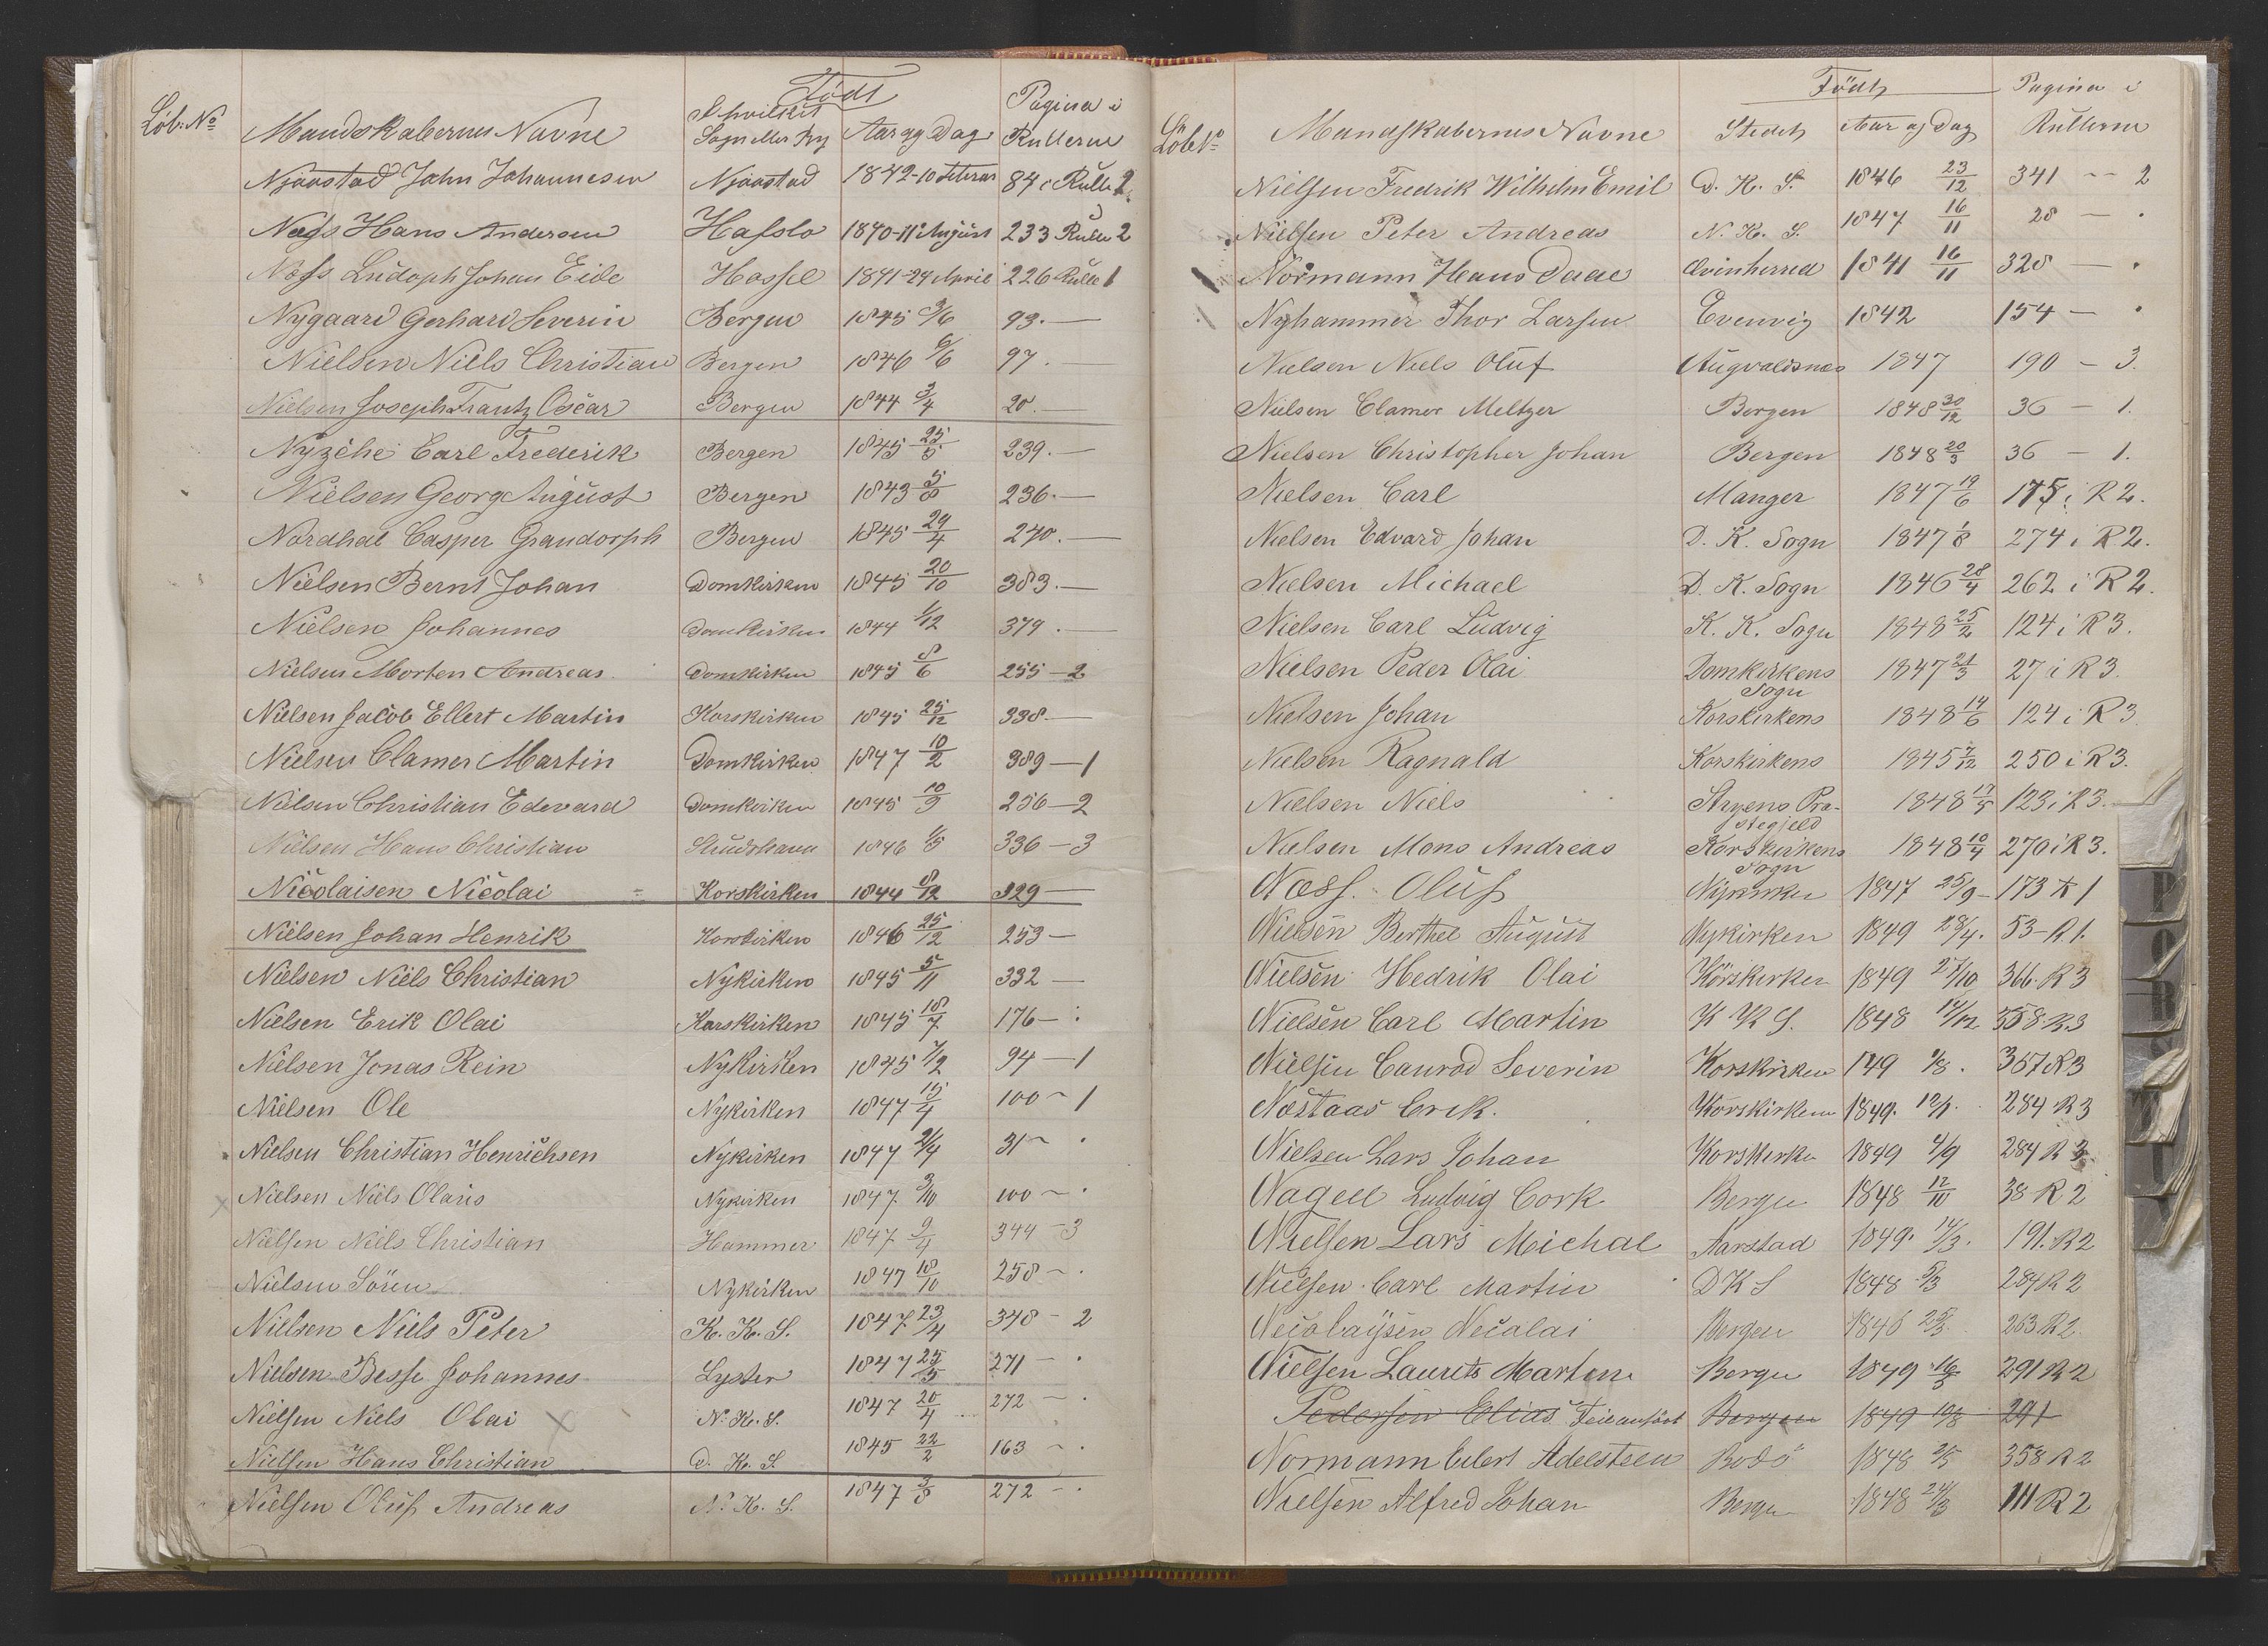 Löb: No Mandskabernes Navne Födt I hvilket Sogn eller By Aar og Dag Pagina i Rullerne
Njaastad John Johannesen Njaastad 1842-10 Februar 84 i Rulle 2
Næss Hans Andersen Hafslo 1840-11 August 233 Rulle 2
Næss Ludoph Johan Eide Hassel 1841-24 April 226 Rulle 1
Nygaard Gerhard Severin Bergen 1845 3/6 93. —
Nielsen Niels Christian Bergen 1846 6/6 97. —
Nielsen Joseph Frantz Oscar Bergen 1844 3/4 20. —
Nyzche Carl Frederik Bergen 1845 25/5 239. —
Nielsen Georg August Bergen 1843 5/8 236. —
Nordhal Casper Grandorph Bergen 1845 29/4 240. —
Nielsen Bernt Johan Domkirken 1845 20/10 383. —
Nielsen Johannes Domkirken 1844 1/12 379. —
Nielsen Morten Andreas Domkirken 1845 8/6 255 — 2
Nielsen Jacob Ellert Martin Korskirken 1845 25/12 338 —
Nielsen Clamer Martin Domkirken 1847 10/2 389 — 1
Nielsen Christian Edevard Domkirken 1845 10/9 256 — 2
Nielsen Hans Christian 1846 1/5 336 — 3
Nicolaisen Nicolai Korskirken 1844 8/12 329 —
Nielsen Johan Henrik Korskirken 1846 25/12 253 —
Nielsen Niels Christian Nykirken 1845 5/11 332 —
Nielsen Erik Olai Korskirken 1845 18/7 176 — :
Nielsen Jonas Rein Nykirken 1845 7/2 94 — 1
Nielsen Ole Nykirken 1847 15/4 100 ~ 1
Nielsen Christian Henrichsen Nykirken 1847 2/4 31 ~ .
Nielsen Niels Olaus Nykirken 1847 3/10 100 ~ .
Nielsen Niels Christian Hammer 1847 9/4 344 - 3
Nielsen Sören Nykirken 1847 18/10 258 ~ .
Nielsen Niels Peter K. K. S. 1847 23/4 348 - 2
Nielsen Besse Johannes Lyster 1847 25/5 271 - .
Nielsen Niels Olai N. K. S. 1847 20/4 272 - .
Nielsen Hans Christian D. K. S. 1845 22/2 163 ~ .
Nielsen Oluf Andreas N. K. S. 1847 3/8 272 - .
Löb No Mandskabernes Navne Födt Stedet Aar og Dag Pagina i Rullerne
Nielsen Fredrik Wilhelm Emil D. K. S. 1846 23/12 341 -- 2
Nielsen Peter Andreas N. K. S. 1847 16/11 28 — .
Normann Hans Daae Qvinherred 1841 16/11 328 — .
Nyhammer Thor Larsen Evenvig 1842 154 — .
Nielsen Niels Oluf Augvaldsnæs 1847 190 — 3.
Nielsen Clamer Meltzer Bergen 1848 30/12 36 — 1.
Nielsen Christopher Johan Bergen 1848 20/3 36 — 1.
Nielsen Carl Manger 1847 19/6 175 i R 2.
Nielsen Edvard Johan D. K. Sogn 1847 1/8 274 i R 2.
Nielsen Michael D. K. Sogn 1846 28/4 262 i R 2.
Nielsen Carl Ludvig K. K. Sogn 1848 25/2 124 i R 3.
Nielsen Peder Olai Domkirkens Sogn 1847 21/3 27 i R 3.
Nielsen Johan Korskirkens 1848 14/6 124 i R 3.
Nielsen Ragnald Korskirkens 1845 7/12 250 i R 3.
Nielsen Niels Præstegjeld 1848 17/5 123 i R 3.
Nielsen Mons Andreas Korskirkens Sogn 1848 10/4 270 i R 3.
Næss. Oluf Nykirken 1847 25/9 - 173 R 1
Nielsen Berthel August Nykirken 1849 28/4. 53 - R. 1.
Nielsen Hedrik Olai Korskirken 1849 27/10 366. R 3
Nielsen Carl Martin K K S. 1848 14/12 358. R. 3
Nielsen Conrad Severin Korskirken 149 1/8. 357 R 3
Nöstaas Erik. Korskirken 1849. 12/1. 284 R 3
Nielsen Lars Johan Korskirken 1849 4/9 284 R 3.
Nagell Ludvig Cork Bergen 1848 12/10 38 R 2
Nielsen Lars Michal Aarstad 1849. 14/3. 191. R 2
Nielsen Carl Martin D K S 1848 5/3 284 R 2
Necolaysen Necolai Bergen 1846 25/3. 263 R 2
Nielsen Laurits Martin Bergen 1849 16/3 291 R 2
Pedersen Elias Feilanfört Bergen 1849 10/8 291
Normann Eilert Adelsteen Bodö 1848 2/5 358 R 2
Nielsen Alfred Johan Bergen 1848 24/3 111 R 2